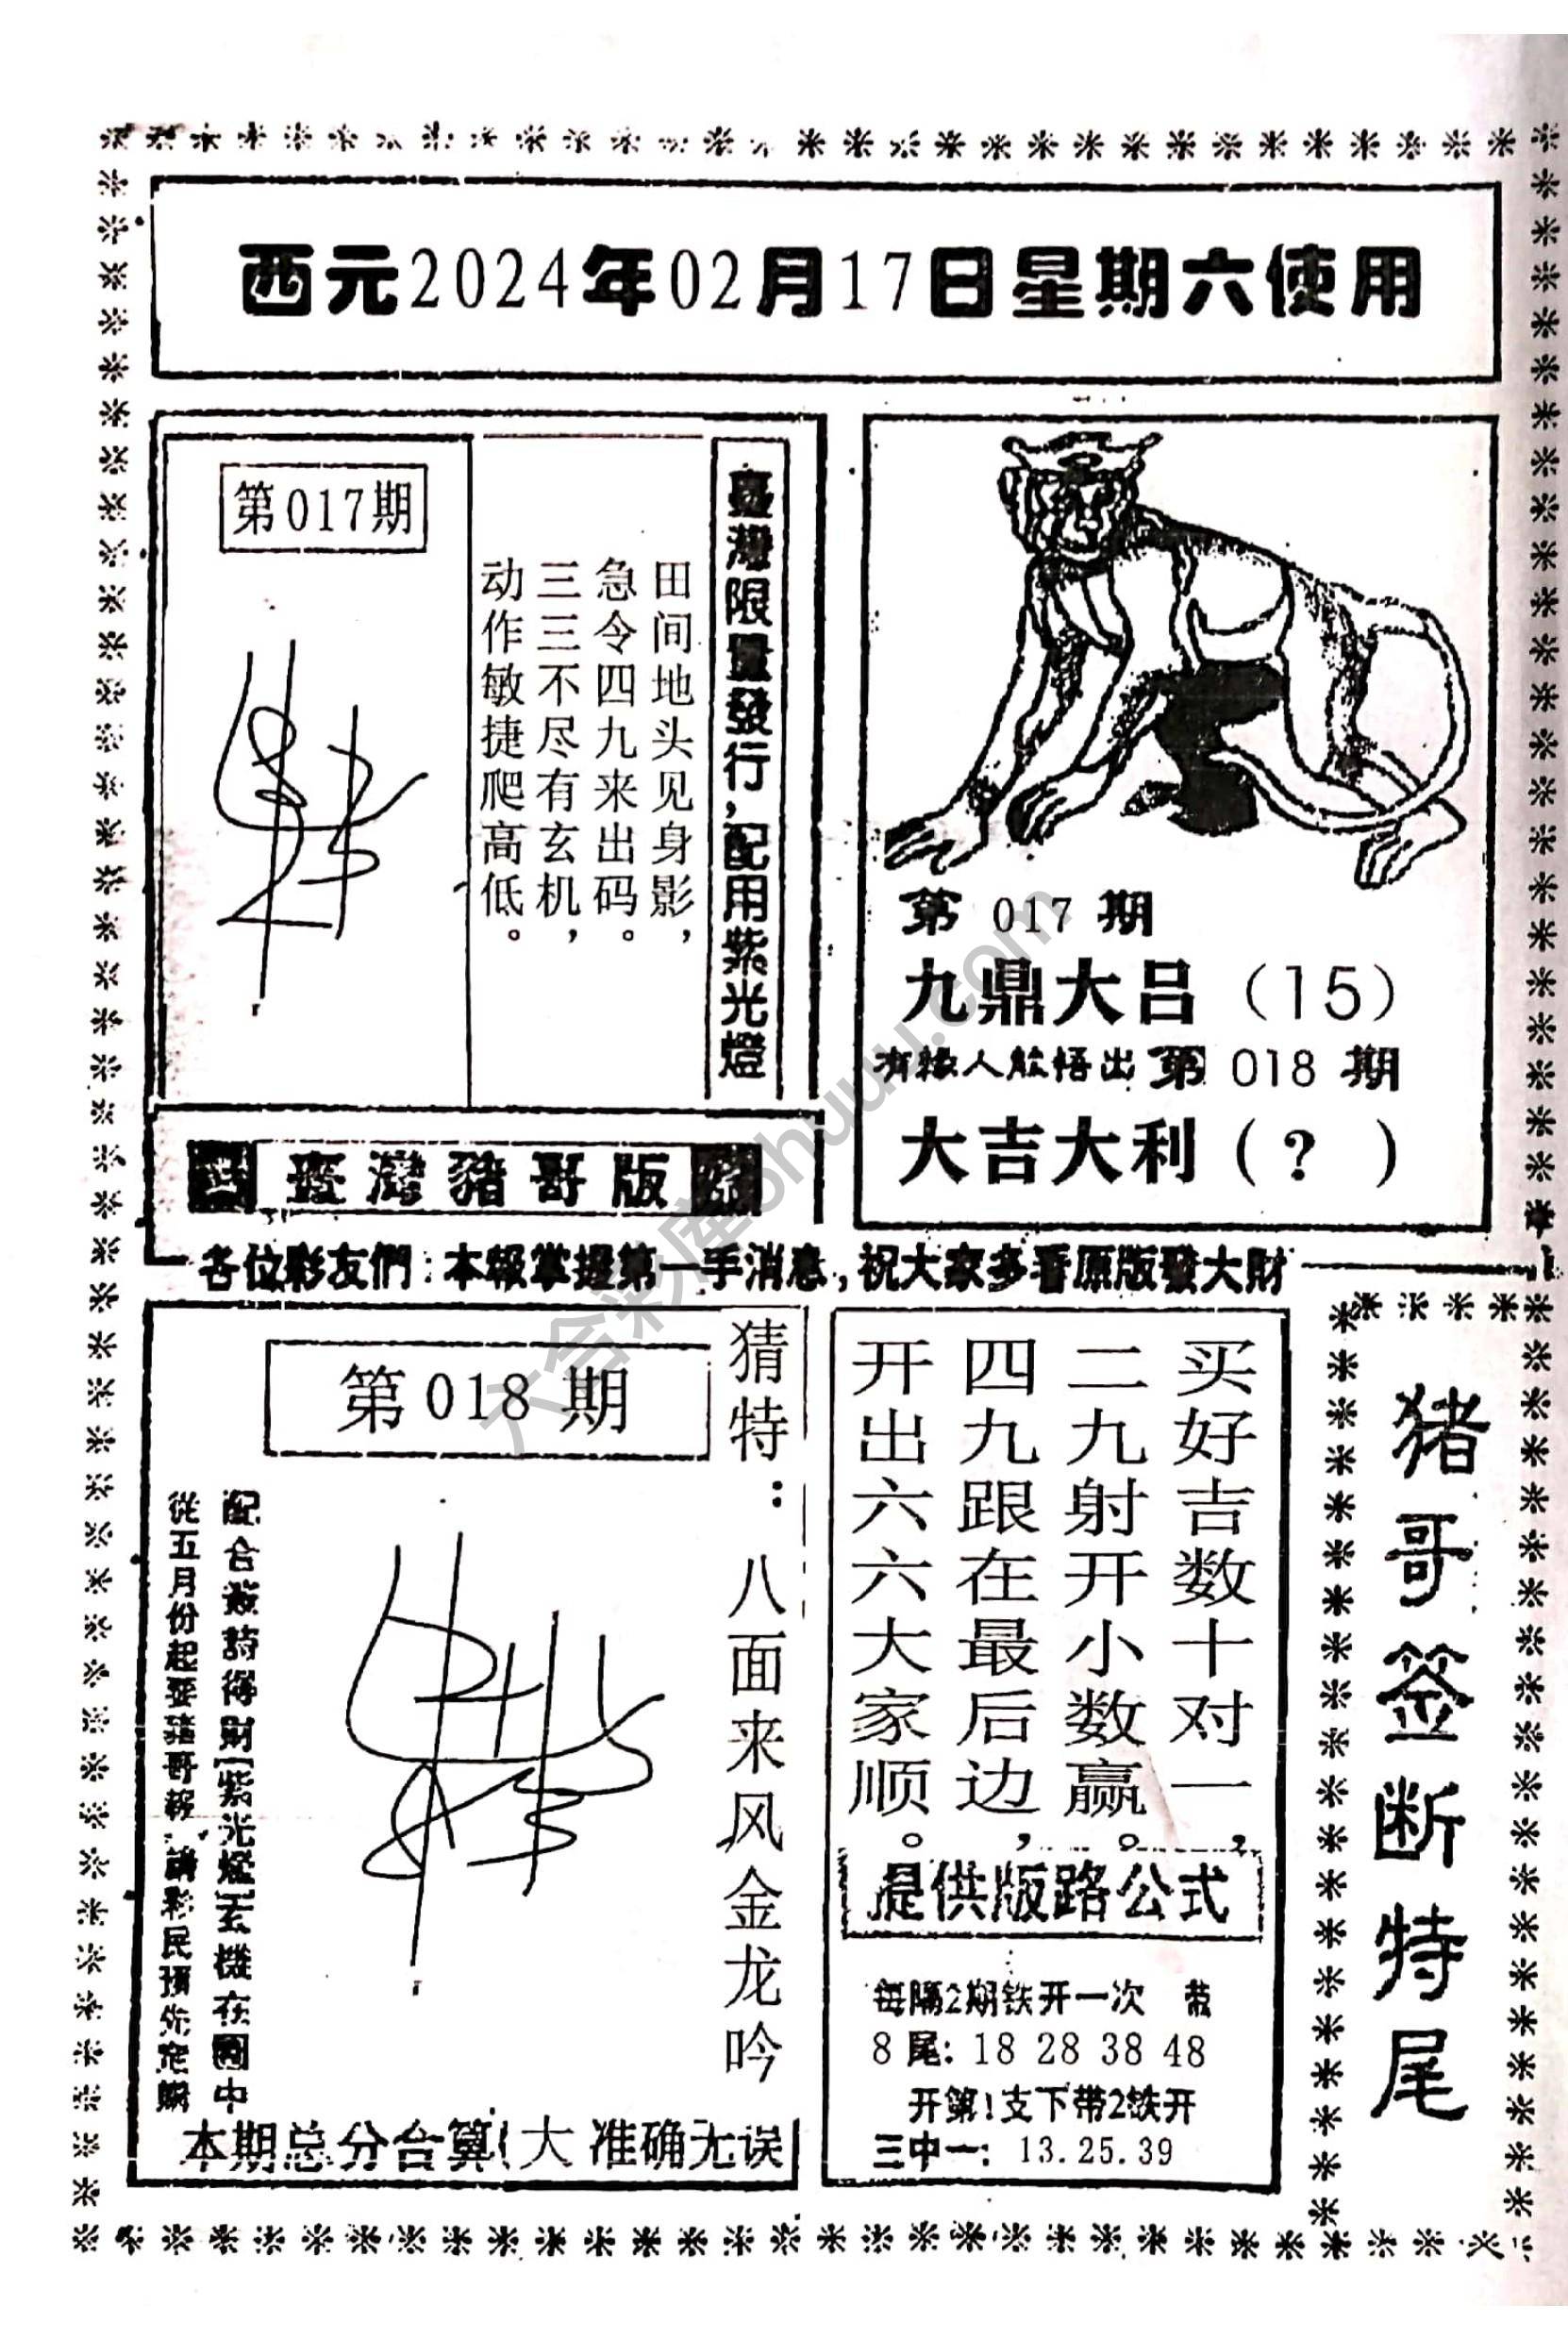 西元2024年02月17日星期六使用
第017期
臺灣限量發行，配用紫光燈
田间地头见身影，
急令四九来出码。
三三不尽有玄机，
动作敏捷爬高低。
第 017 期
九鼎大吕（15）
有缘人能悟出第 018 期
大吉大利（?）
臺灣豬哥版
各位彩友們：本報掌握第一手消息，祝大家多看原版發大財
第018期
猜特：八面来风金龙吟
從五月份起要猪哥報，請彩民預先定購
本期总分合算（大 准确无误
买好吉数十对一，
二九射开小数赢。
四九跟在最后边，
开出六六大家顺。
提供版路公式
每隔2期铁开一次 带
8 尾: 18 28 38 48
开第1支下带2铁开
三中一: 13.25.39
猪哥签断特尾
六合彩库 huuu.com